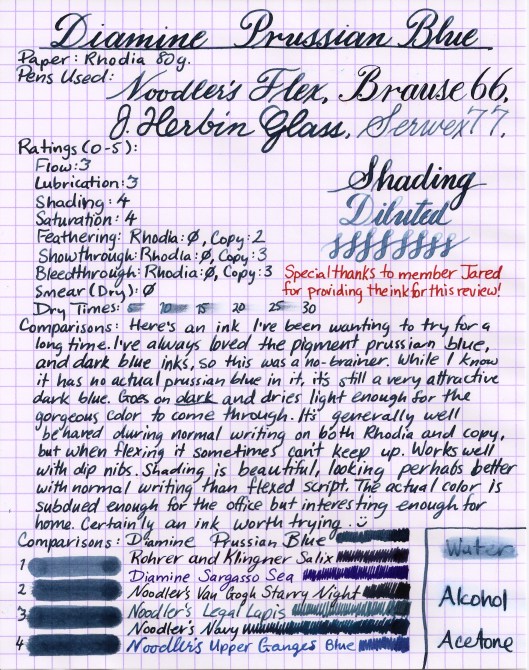 Diamine Prussian Blue
Paper: Rhodia 80g.
Pens Used:
Noodler's Flex, Brause 66,
J. Herbin Glass, Serwex 77.
Ratings (0-5):
Flow: 3
Lubrication: 3
Shading: 4
Saturation: 4
Feathering: Rhodia: Ø, Copy: 2
Showthrough: Rhodia: Ø, Copy: 3
Bleedthrough: Rhodia: Ø, Copy: 3
Smear (Dry): Ø
Shading
Diluted
Special thanks to member Jared
for providing the ink for this review!
Dry Times: 5 10 15 20 25 30
Comparisons: Here's an ink I've been wanting to try for a
long time. I've always loved the pigment prussian blue,
and dark blue inks, so this was a no-brainer. While I know
it has no actual prussian blue in it, it's still a very attractive
dark blue. Goes on dark and dries light enough for the
gorgeous color to come through. It's generally well
behaved during normal writing on both Rhodia and copy,
but when flexing it sometimes can't keep up. Works well
with dip nibs. Shading is beautiful, looking perhabs better
with normal writing than flexed script. The actual color is
subdued enough for the office but interesting enough for
home. Certainly an ink worth trying. :)
Comparisons: Diamine Prussian Blue
Rohrer and Klingner Salix
Diamine Sargasso Sea
Noodler's Van Gogh Starry Night
Noodler's Legal Lapis
Noodler's Navy
Noodler's Upper Ganges Blue
1
2
3
4
Water
Alcohol
Acetone